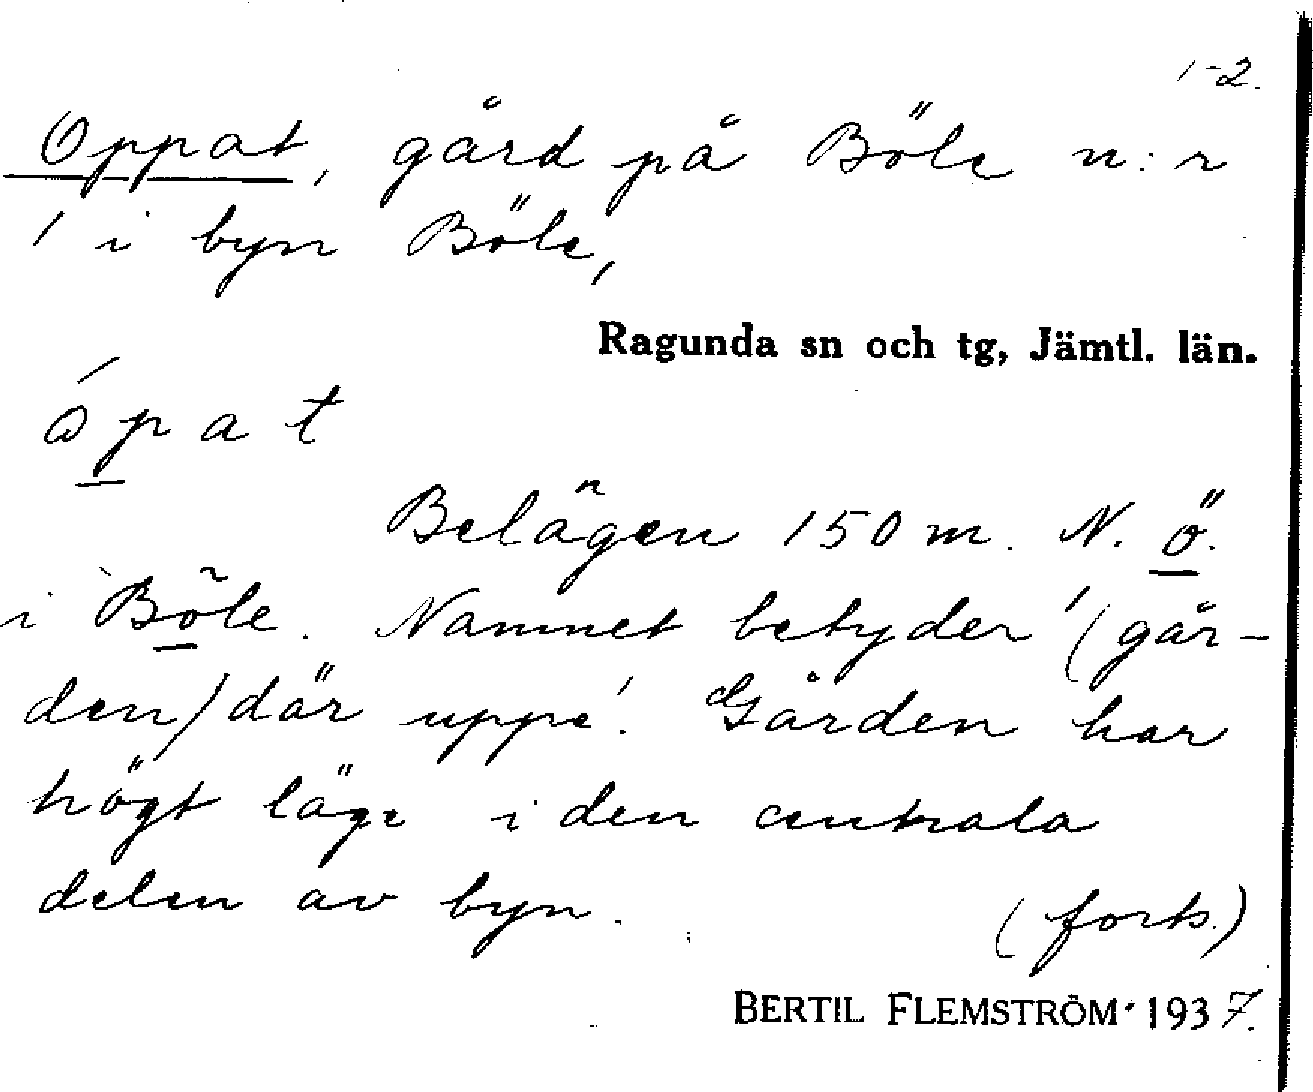 1-2.
Oppat, gård på Böle n:r
1 i byn Böle,
Ragunda sn och tg, Jämtl. län.
ópat
Belägen 150 m. N. Ö.
i Böle. Namnet betyder '(går-
den) där uppe'. Gården har
högt läge i den centrala
delen av byn.
(forts.)
BERTIL FLEMSTRÖM 1937.